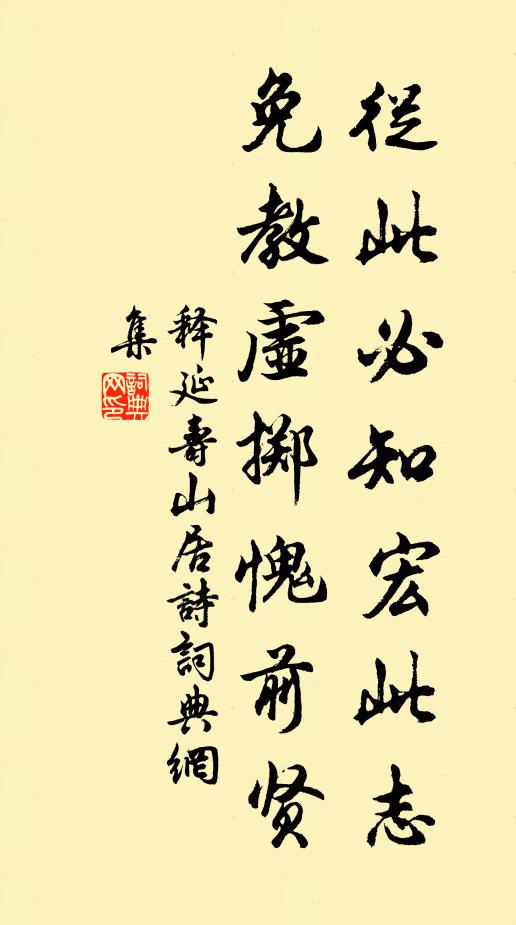 從此必知宏此志
免教虛擲愧前贤
释延壽山居詩詞典網
集
詞典
网印